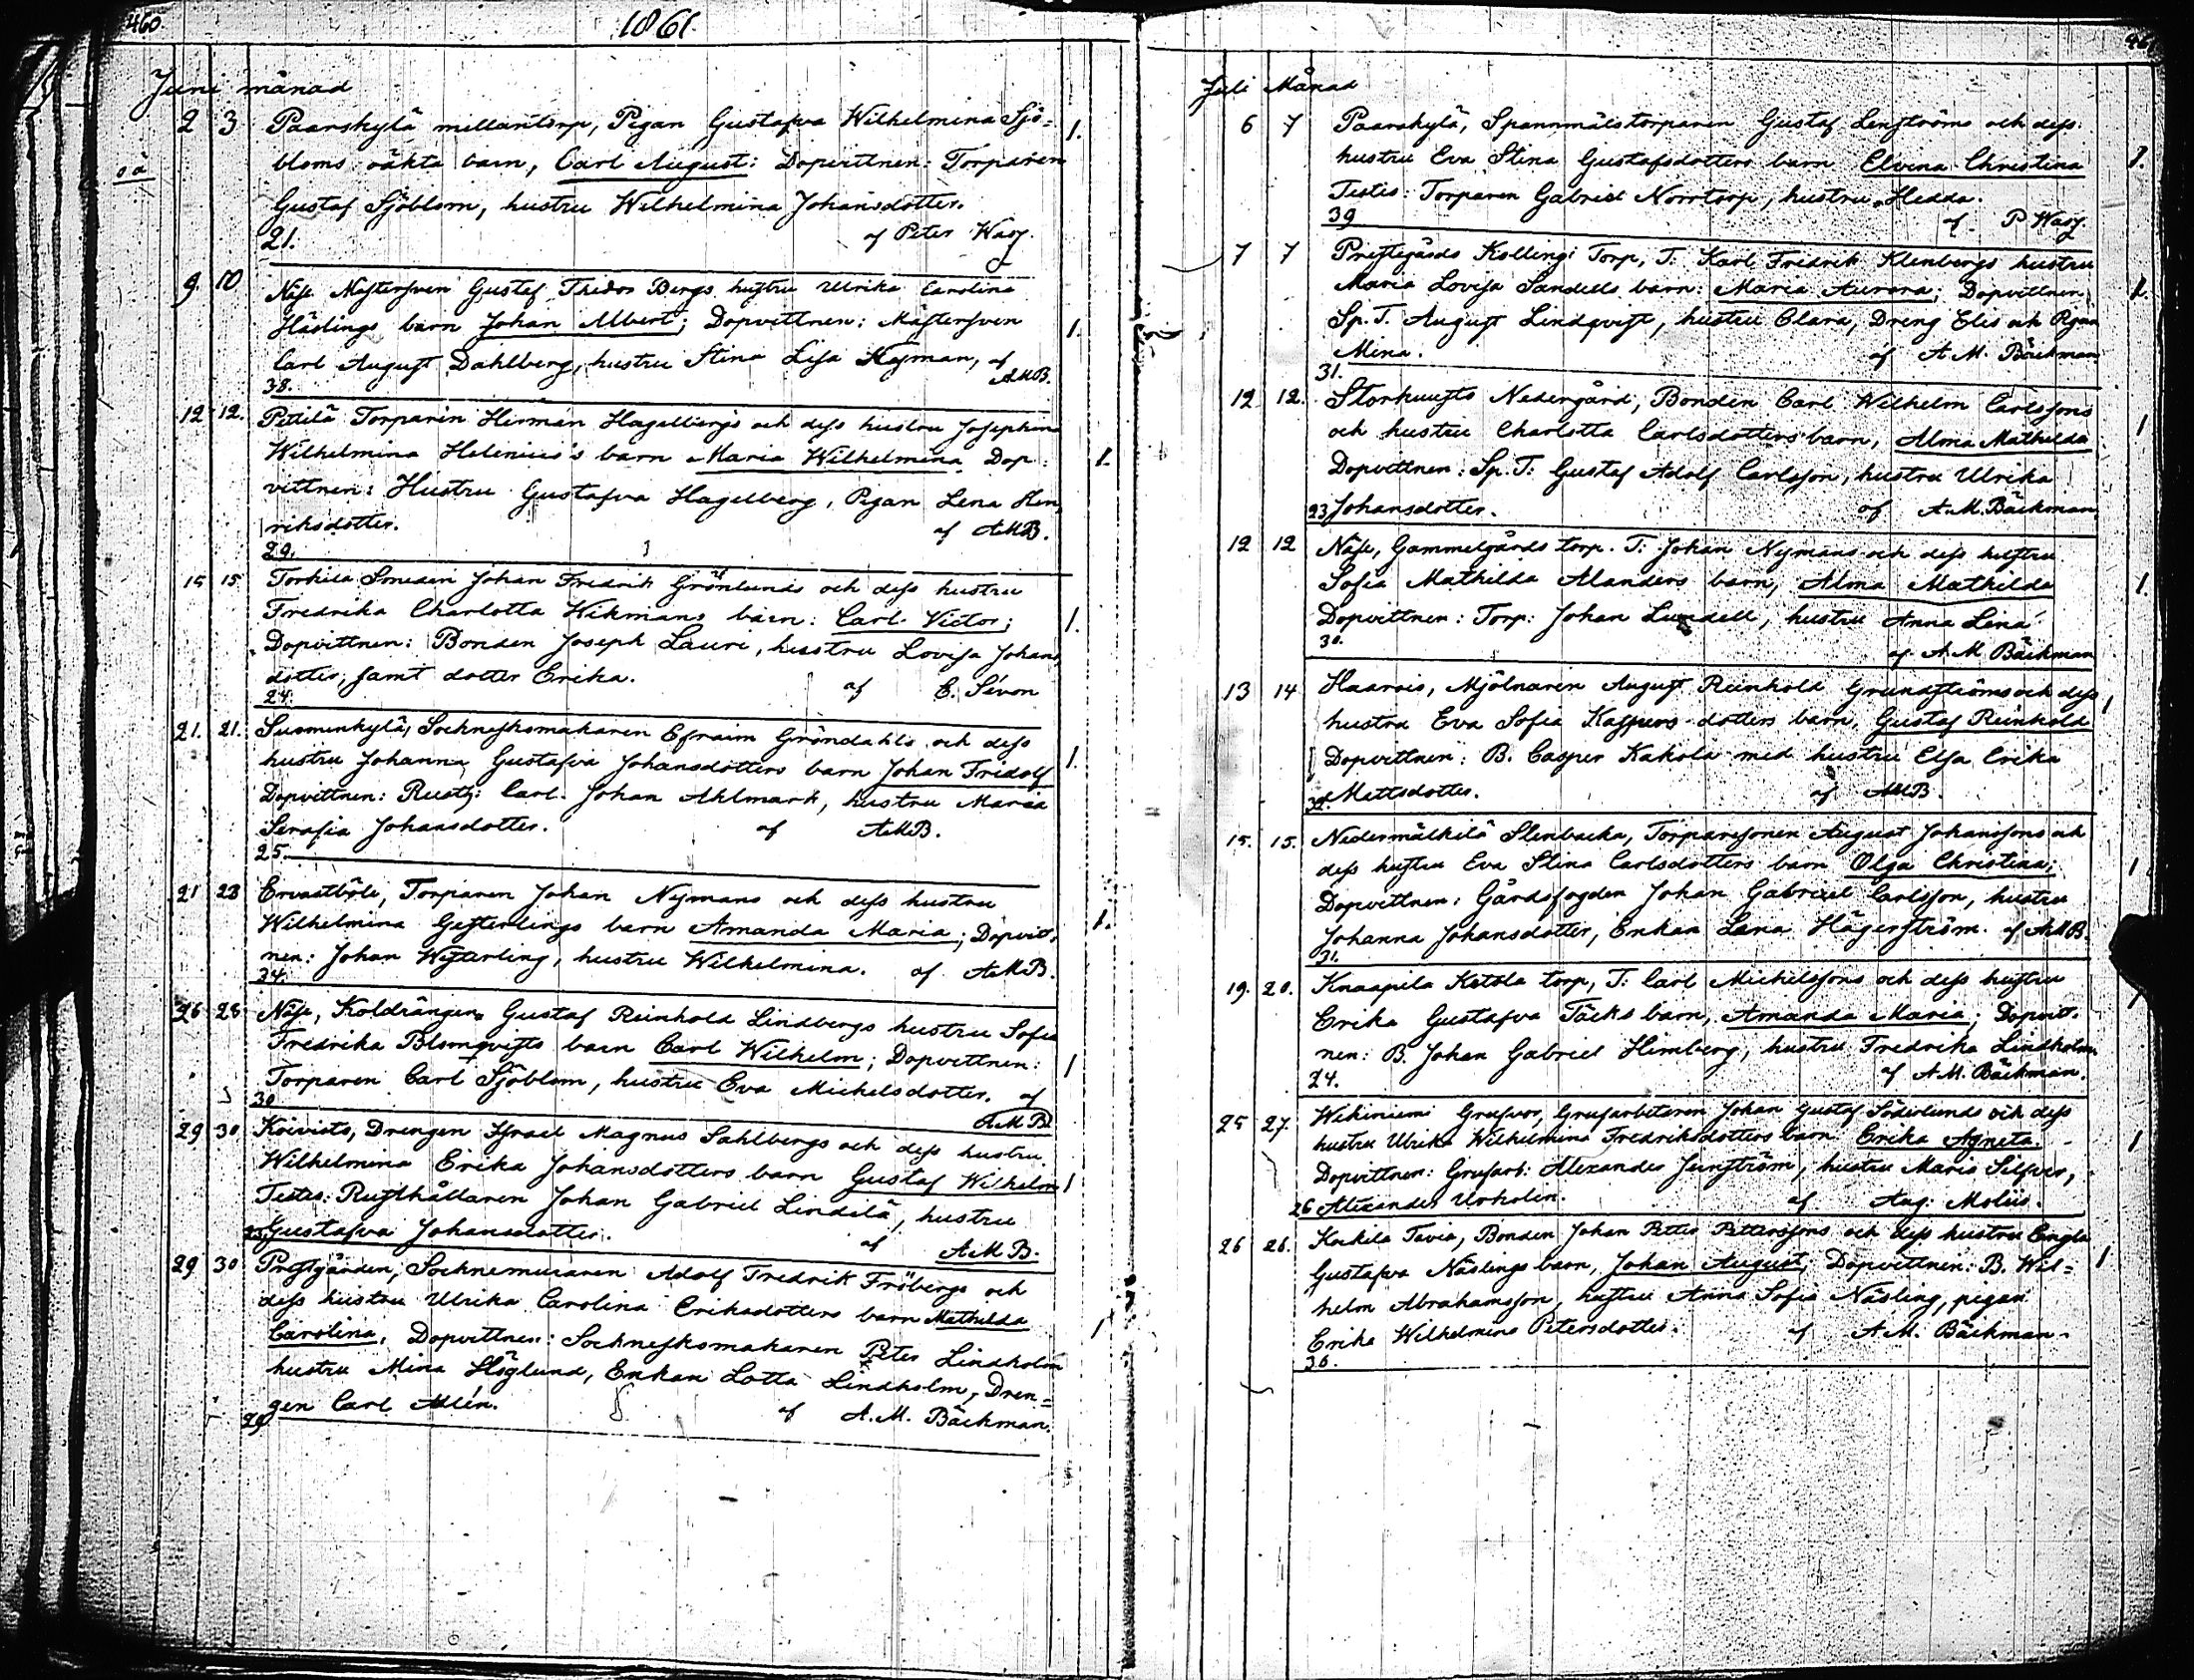 460
1861.
Juni månad
2 3 Paarskylä mellantorp, Pigan Gustafva Wilhelmina Sjö= 1.
oä bloms oäkta barn, Carl August: Dopvittnen: Torparen
Gustaf Sjöblom, hustru Wilhelmina Johansdotter.
21. af Peter Wasz.
9. 10 Näse Mastersven Gustaf Thidor Bergs hustru Ulrika Carolina
Häslings barn Johan Albert; Dopvittnen: Mastersven 1.
Carl August Dahlberg, hustru Stina Lisa Nyman, af
38. AMB.
12 12. Pettilä Torparen Herman Hagelbergs och dess hustru Josephina
Wilhelmina Helenius's barn Maria Wilhelmina Dop: 1.
vittnen: Hustru Gustafva Hagelberg, Pigan Lena Hen
riksdotter. af AMB.
29.
15 15. Torkila Smeden Johan Fredrik Grönlunds och dess hustru
Fredrika Charlotta Wikmans barn: Carl Victor; 1.
Dopvittnen: Bonden Joseph Lauri, hustru Lovisa Johans
dotter, samt dotter Erika. af E. Sévon
24.
21. 21. Suomenkylä, Sockneskomakaren Efraim Gröndahls och dess
hustru Johanna Gustafva Johansdotters barn Johan Fridolf 1.
Dopvittnen: Rusth: Carl Johan Ahlmark, hustru Maria
Serafia Johansdotter. af AMB.
25.
21 23 Ervastböle, Torparen Johan Nymans och dess hustru
Wilhelmina Gesterlings barn Amanda Maria; Dopvitt= 1.
nen: Johan Westerling, hustru Wilhelmina. af AMB.
34.
26 28 Näse, Koldrängen Gustaf Reinhold Lindbergs hustru Sofia
Fredrika Blomqvists barn Carl Wilhelm; Dopvittnen: 1
Torparen Carl Sjöblom, hustru Eva Michelsdotter. af
30 AMB
29 30 Koivisto, Drengen Israel Magnus Sahlbergs och dess hustru
Wilhelmina Erika Johansdotters barn Gustaf Wilhelm 1
Testes: Rusthållaren Johan Gabriel Lindelä, hustru
Gustafva Johansdotter. af AMB.
29 30 Prestgården, Socknemuraren Adolf Fredrik Fröbergs och
dess hustru Ulrika Carolina Eriksdotters barn Mathilda
Carolina, Dopvittnen: Sockneskomakaren Peter Lindholm 1
hustru Mina Höglund, Enkan Lotta Lindholm, Dren=
gen Carl Alén. af A.M. Bäckman.
29
461
Juli Månad
6 7 Paarskylä, Spannmålstorparen Gustaf Lenströms och dess
hustru Eva Stina Gustafsdotters barn Elvina Christina 1.
Testis: Torparen Gabriel Norrtorp, hustru Hedda.
39 af P Wasz.
7 7 Prestegårds Kollings Torp, T: Karl Fredrik Klenbergs hustru
Maria Lovisa Sandells barn: Maria Aurora; Dopvittnen 1.
Sp. T. August Lindqvist, hustru Clara, Dreng Elis och Pigan
Mina. af A M. Bäckman
31.
12 12. Storhuusts Nedergård, Bonden Carl Wilhelm Carlssons
och hustru Charlotta Carlsdotters barn, Alma Mathilda 1
Dopvittnen: Sp. T: Gustaf Adolf Carlsson, hustru Ulrika
23 Johansdotter. af A.M. Bäckman.
12 12 Näse, Gammelgårds torp. T: Johan Nymans och dess hustru
Sofia Mathilda Alanders barn, Alma Mathilda 1.
Dopvittnen: Torp: Johan Lundell, hustru Anna Lena
30. af A.M Bäckman
13 14 Haarois, Mjölnaren August Reinhold Grundströms och dess 1
hustru Eva Sofia Kaspers dotters barn, Gustaf Reinhold
Dopvittnen: B. Casper Kakola med hustru Elsa Erika
Mattsdotter. af AMB.
15. 15. Nedermälkilä Stenbacka, Torparesonen August Johanssons och
dess hustru Eva Stina Carlsdotters barn Olga Christina; 1
Dopvittnen: Gårdsfogden Johan Gabriel Carlsson, hustru
Johanna Johansdotter, Enkan Lena Hägerström. af AMB.
31.
19. 20. Knaapila Ketola torp, T: Carl Michelssons och dess hustru
Erika Gustafva Täcks barn, Amanda Maria; Dopvitt- 1
nen: B. Johan Gabriel Himberg, hustru Fredrika Lindholm
24. af A M. Bäckman.
25 27. Wihiniemi Grufvor, Grufarbetaren Johan Gustaf Söderlunds och dess
hustru Ulrika Wilhelmina Fredriksdotters barn Erika Agneta. 1
Dopvittnen: Grufarb: Alexander Jernström, hustru Maria Silfver,
26 Alexander Urholin. af Aug: Moliis.
26 26. Kockila Tavia, Bonden Johan Petter Petterssons och dess hustru Engla
Gustafva Näslings barn, Johan August; Dopvittnen: B. Wil= 1
helm Abrahamsson, hustru Anna Sofia Näsling, pigan
Erika Wilhelmina Petersdotter. af A M. Bäckman.
36.